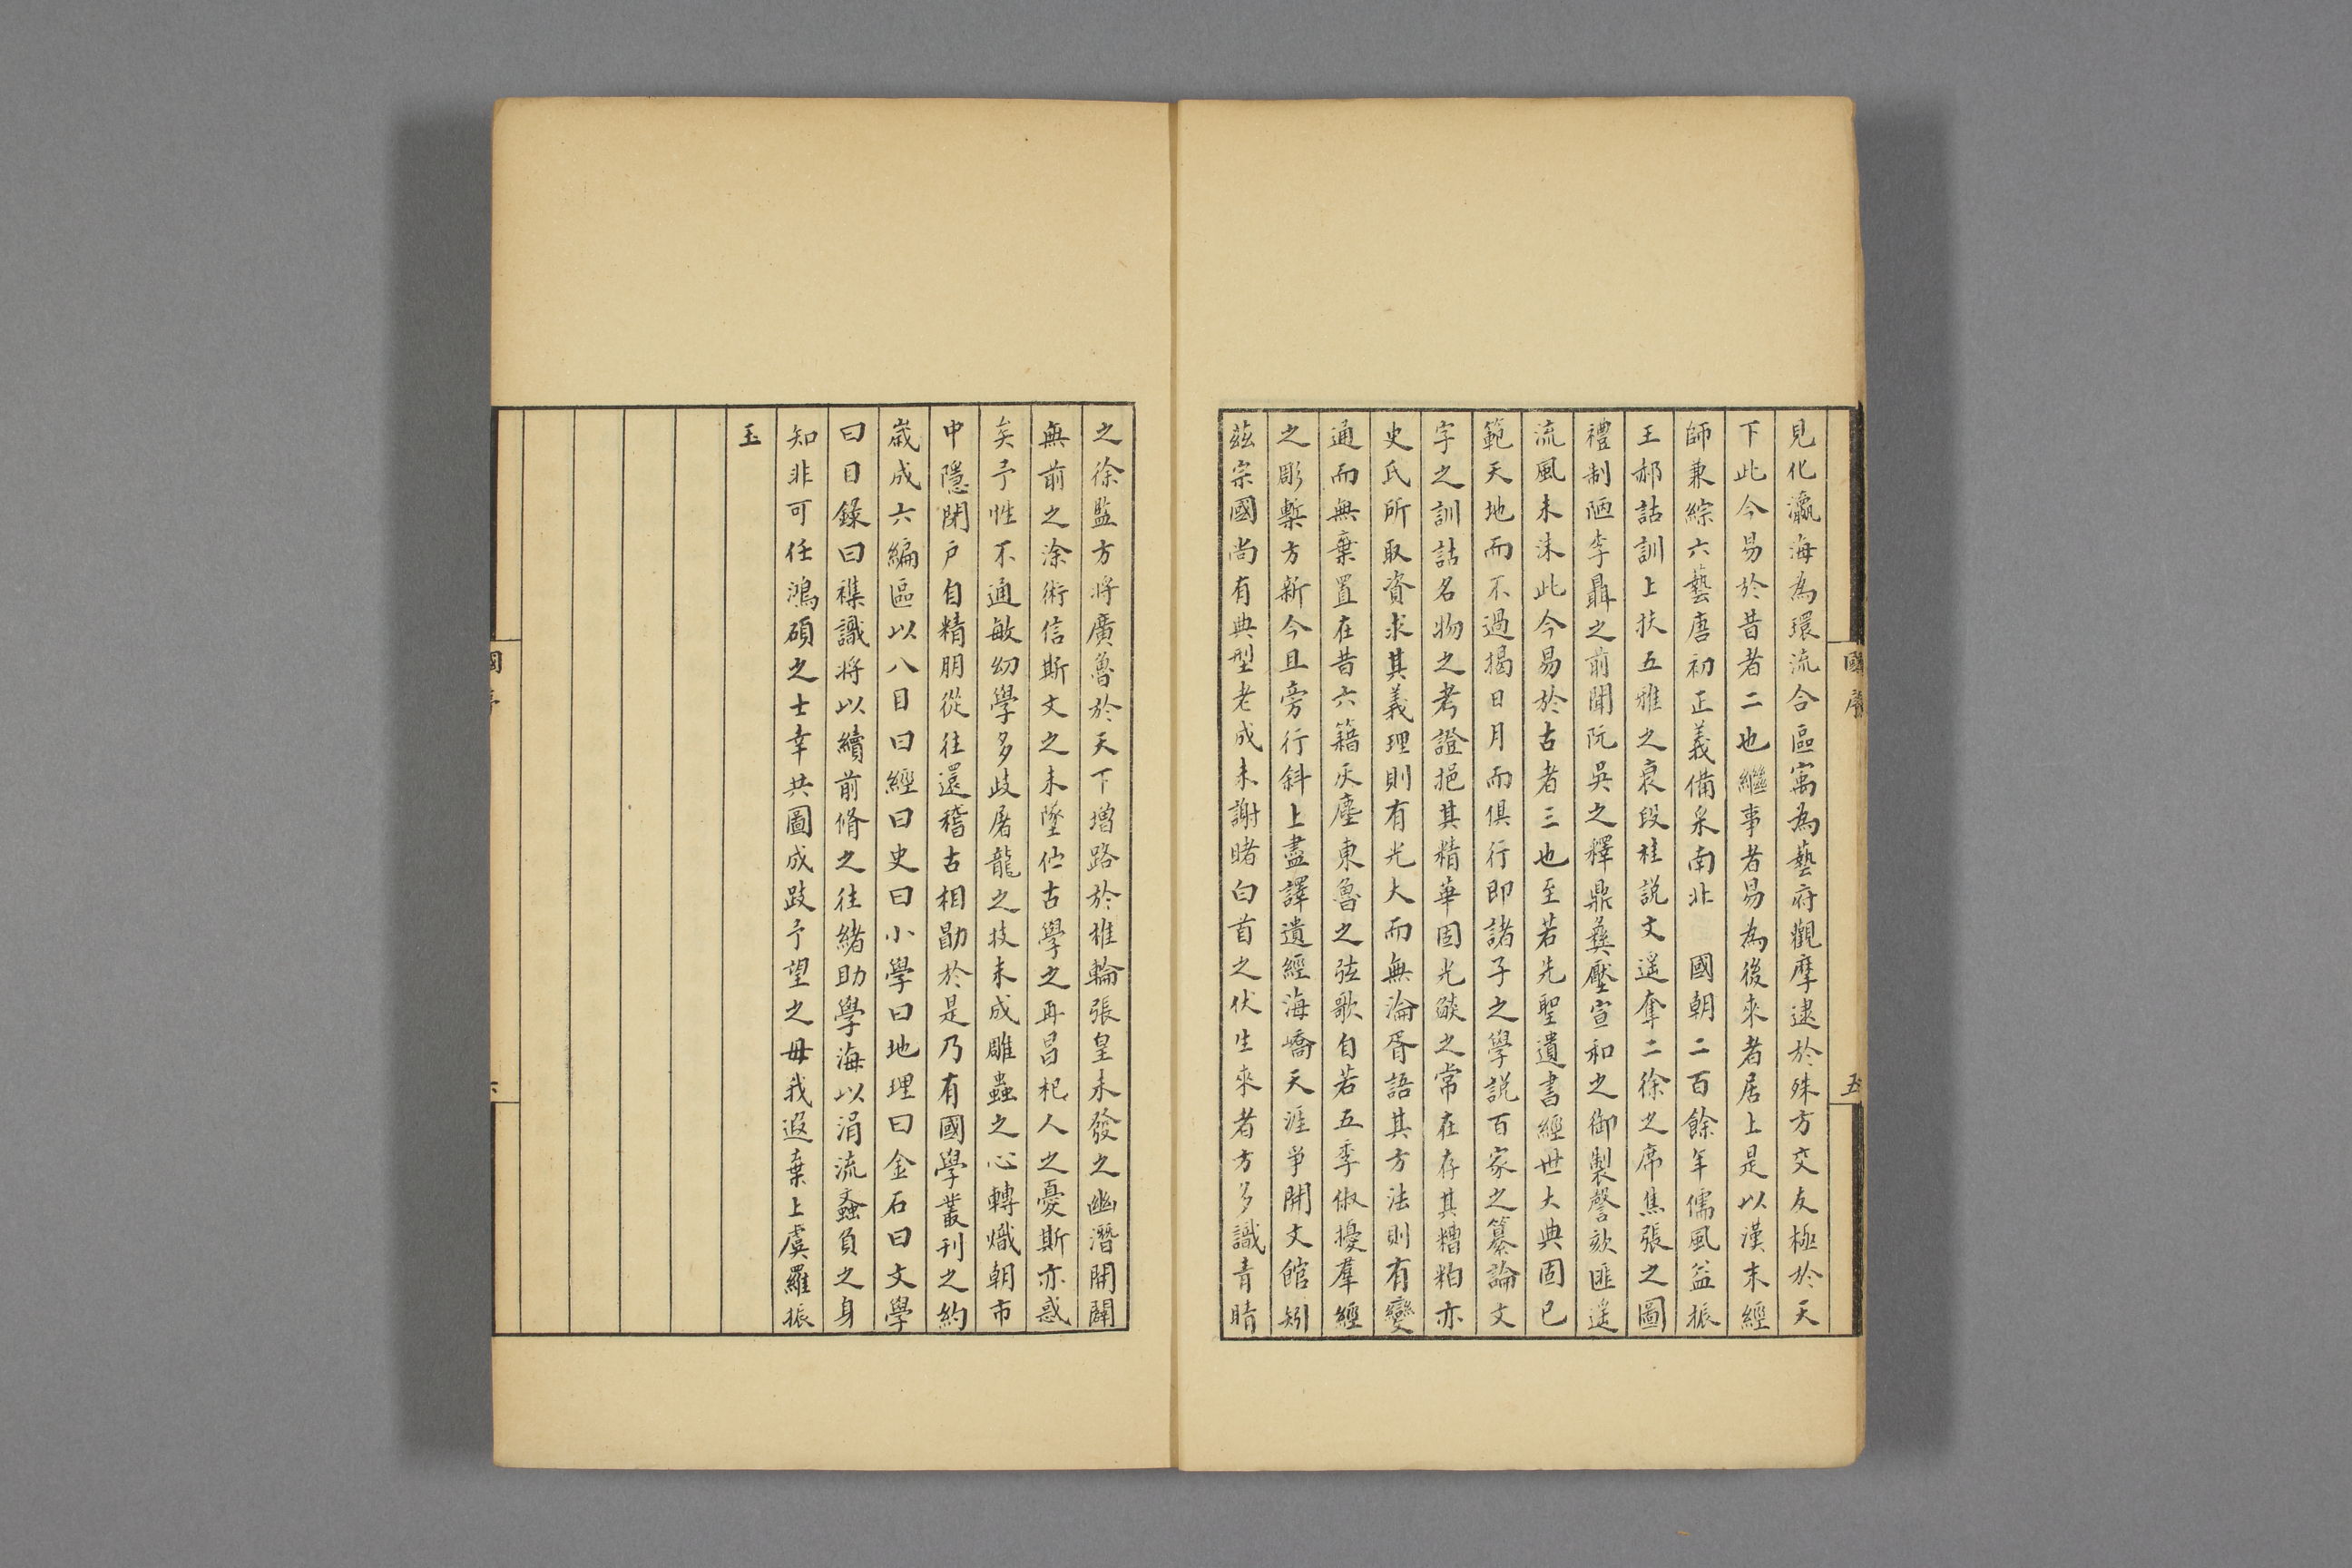 國序
五
見化瀛海為環流合區寓為藝府觀摩逮於殊方交友極於天
下此今易於昔者二也繼事者易為後來者居上是以漢末經
師兼綜六藝唐初正義備采南北　國朝二百餘年儒風益振
王郝詁訓上扶五雅之衰段桂說文遥奪二徐之席焦張之圖
禮制陋李聶之前聞阮吳之釋鼎彝壓宣和之御製謦欬匪遥
流風未沬此今易於古者三也至若先聖遺書經世大典固已
範天地而不過揭日月而俱行即諸子之學說百家之纂論文
字之訓詁名物之考證挹其精華固光燄之常在存其糟粕亦
史氏所取資求其義理則有光大而無淪胥語其方法則有變
通而無棄置在昔六籍灰塵東魯之弦歌自若五季俶擾羣經
之彫槧方新今且旁行斜上盡譯遺經海嶠天涯爭開文館矧
茲宗國尚有典型老成未謝睹白首之伏生來者方多識青睛
之徐監方將廣魯於天下增路於椎輪張皇未發之幽潛開闢
無前之涂術信斯文之未墜佇古學之再昌杞人之憂斯亦惑
矣予性不通敏幼學多歧屠龍之技未成雕蟲之心轉熾朝市
中隱閉户自精朋從往還稽古相勖於是乃有國學叢刊之約
歲成六編區以八目曰經曰史曰小學曰地理曰金石曰文學
曰目錄曰襍識將以續前脩之往緒助學海以涓流蚉負之身
知非可任鴻碩之士幸共圖成跂予望之毋我遐棄上虞羅振
玉
國